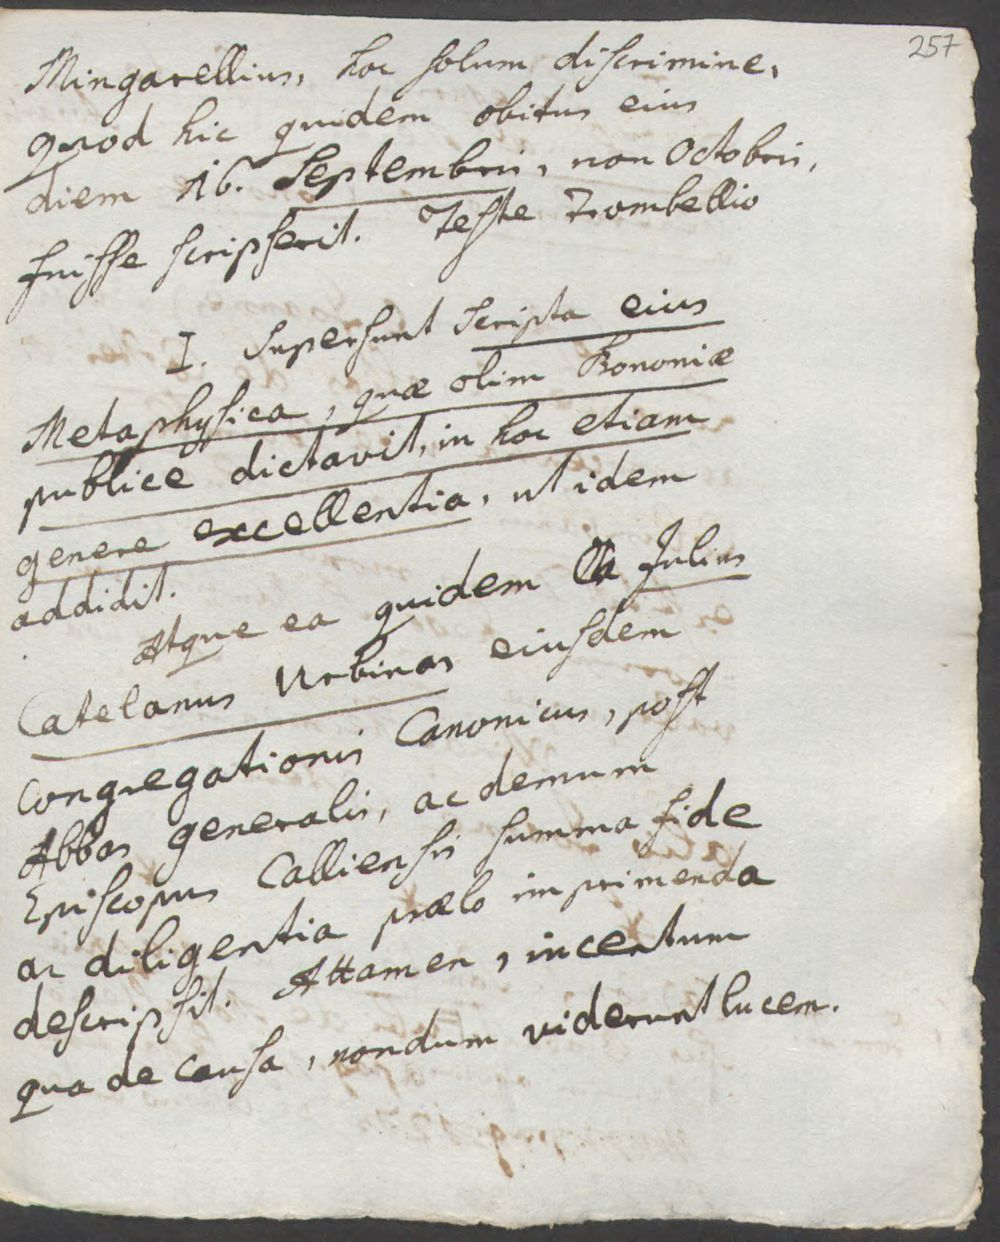 257
Mingarellius, hoc solum discrimine,
quod hic quidem obitus eius
diem 16. Septembris, non Octobris,
fuisse scripserit. Teste Trombellio
I. Supersunt Scripta eius
Metaphysica, quæ olim Bononiæ
publice dictavit, in hoc etiam
genere excellentia, ut idem
addidit.
Atque ea quidem Julius
Catelanus Urbinas eiusdem
Congregationis Canonicus, post
Abbas generalis, ac demum
Episcopus Calliensis summa fide
ac diligentia prælo imprimenda
descripsit. Attamen, incertum
qua de causa, nondum viderunt lucem.